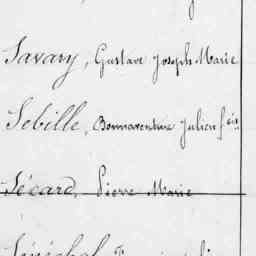 Savary, Gustave Joseph Marie
Sebille, Bonnaventure Julien fçois
Sécard, Pierre Marie
Sénéchal